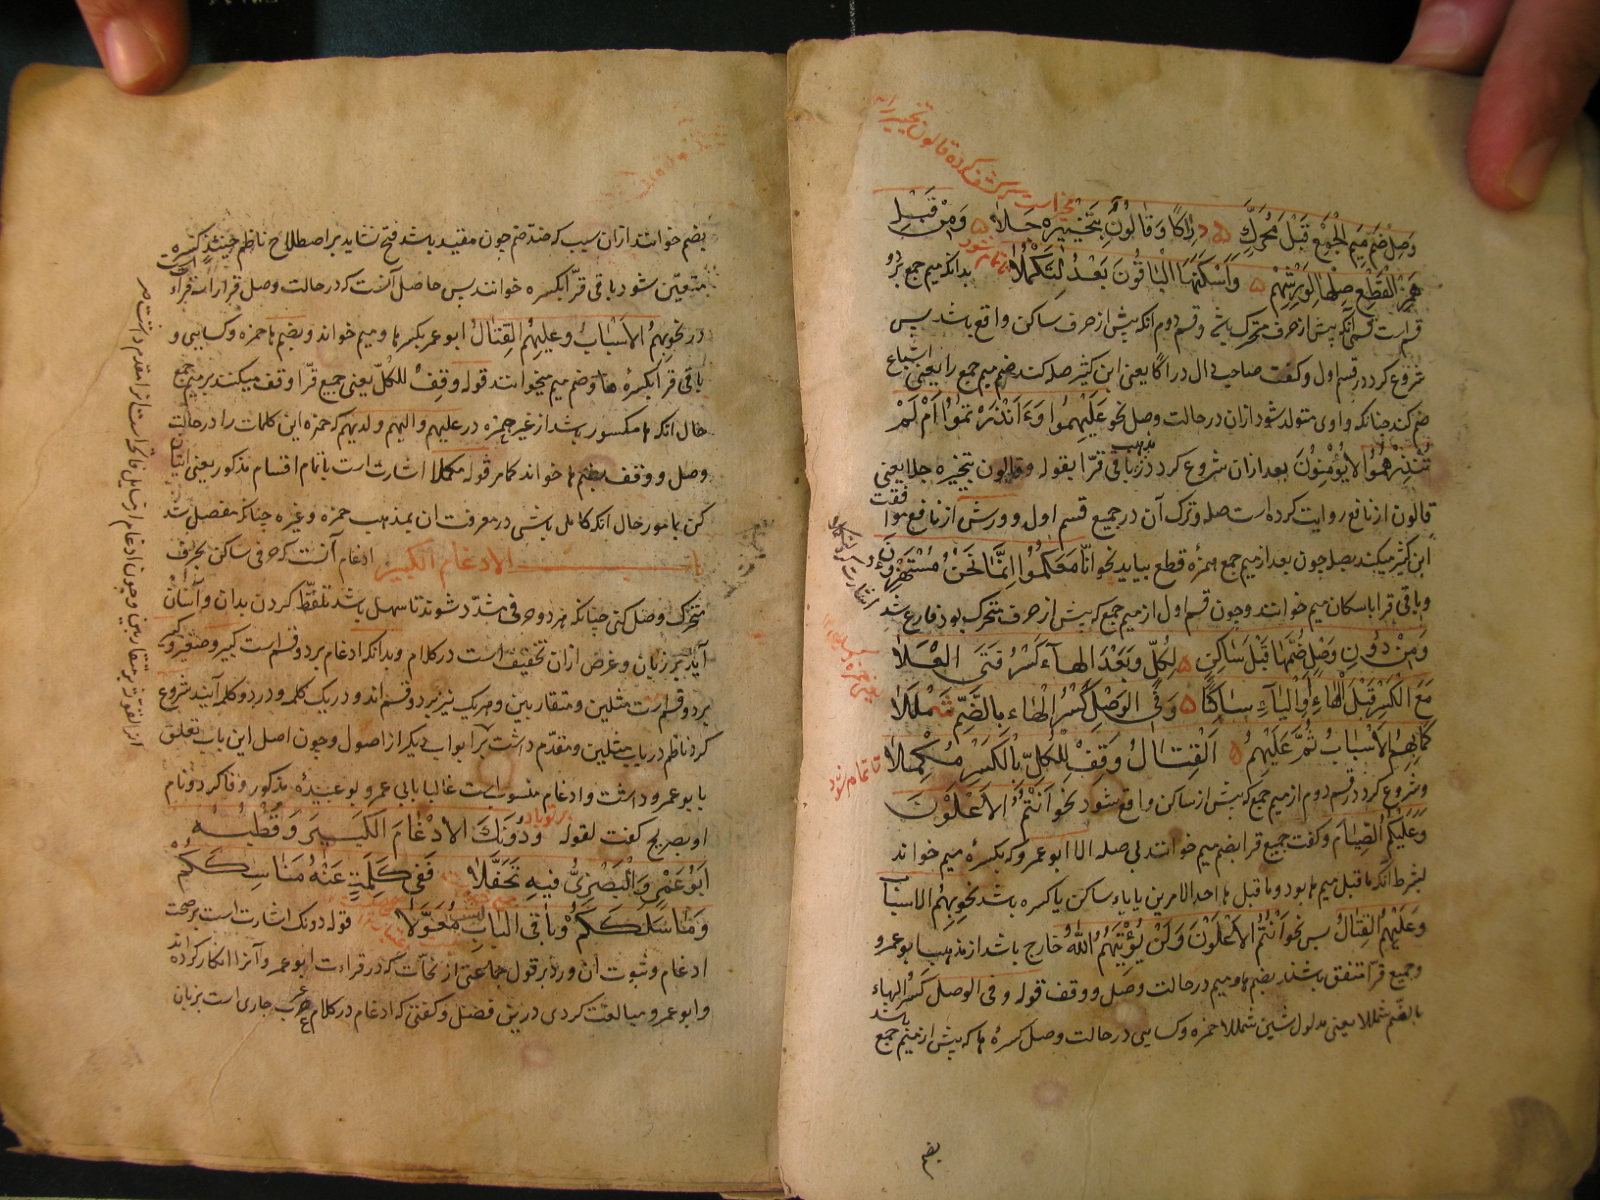 وَصِلْ ضَمَّ مِيمِ الْجَمْعِ قَبْلَ مُحَرَّكٍ ۵ دِرَاكًا وَقَالُونٌ بِتَخْيِيرِهِ جَلَا ۵ وَمِنْ قَبْلِ
هَمْزِ الْقَطْعِ صِلْهَا لِوَرْشِهِمْ ۵ وَأَسْكَنَهَا الْبَاقُونَ بَعْدُ لِتَكْمُلَا بدانکه میم جمع بر دو
قسم است قسمی آنکه پیش از حرف متحرک باشد و قسم دوم آنکه پیش از حرف ساکن واقع باشد پس
شروع کرد در قسم اول و گفت صاحب دال دراکا یعنی ابن کثیر صله کند ضم میم جمع را یعنی اشباع
ضم کند چنانکه واوی متولد شود ازان در حالت وصل نحو عَلَيْهِمُوا وَءَاَنْذَرْتَهُمُوا اَمْ لَمْ
تُنْذِرْهُمُوا لَا يُؤْمِنُونَ بعد ازان شروع کرد در مذهب باقی قرا بقوله وقالون بتخییره جلا یعنی
قالون از نافع روایت کرده است صله و ترک آن در جمیع قسم اول و ورش از نافع موافقت
ابن کثیر میکند بصله چون بعد از میم جمع همزه قطع بیاید نحو اِنَّا مَعَكُمُوا اِنَّمَا نَحْنُ مُسْتَهْزِؤُنَ
و باقی قرا باسکان میم خوانند و چون قسم اول از میم جمع که پیش از حرف متحرک بود فارغ شد
وَمِنْ دُونِ وَصْلٍ ضُمَّهَا قَبْلَ سَاكِنٍ ۵ لِكُلٍّ وَبَعْدَ الْهَاءِ كَسْرُ فَتَى الْعَلَا
مَعَ الْكَسْرِ قَبْلَ الْهَاءِ اَوِ الْيَاءِ سَاكِنًا ۵ وَفِي الْوَصْلِ كَسْرُ الْهَاءِ بِالضَّمِّ شَمْلَلَا
كَمَا بِهِمُ الْاَسْبَابُ ثُمَّ عَلَيْهِمُ ۵ الْقِتَالُ وَقِفْ لِلْكُلِّ بِالْكَسْرِ مُكْمِلَا
و شروع کرد در قسم دوم از میم جمع که پیش از ساکن واقع شود نحو اَنْتُمُ الْاَعْلَوْنَ
وَعَلَيْكُمُ الصِّيَامُ و گفت جمیع قرا بضم میم خوانند بی صله الا ابو عمرو که بکسره میم خواند
بشرط آنکه ما قبل میم ها بود و ما قبل ها احد الامرین یا یاء ساکن یا کسره باشد نحو بِهِمُ الاسباب
وَعَلَيْهِمُ الْقِتَالُ پس نحو اَنْتُمُ الْاَعْلَوْنَ وَلَنْ يُؤْتِيَهُمُ اللّٰهُ خارج باشد از مذهب ابو عمرو
و جمیع قرا متفق باشند بضم ها و میم در حالت وصل و وقف قوله و فی الوصل کسر الهاء
بالضم شمللا یعنی مدلول شین شمللا حمزه و کسایی در حالت وصل کسره ها که پیش از میم جمع باشد
بضم
تا تمام شود
بضم خوانند ازان سبب که ضد ضم چون مقید باشد فتح نشاید بر اصطلاح ناظم حینئذ کسره
متعین شود باقی قرا بکسره خوانند پس حاصل آنست که در حالت وصل قرا را سه قراءت است
در نحو بِهِمُ الْاَسْبَابُ وعَلَيْهِمُ الْقِتَالُ ابو عمر بکسر ها و میم خواند و بضم ها حمزه و کسایی و
باقی قرا بکسره ها و ضم میم میخوانند قوله وقف للکل یعنی جمیع قرا وقف میکنند بر میم جمع
حال آنکه ها مکسور باشد از غیر حمزه در علیهم و الیهم و لدیهم که حمزه این کلمات را در حالت
وصل و وقف بضم ها خواند کما مر قوله مکملا اشارت است باتمام اقسام مذکور یعنی
کن یا مور حال آنکه کامل باشی در معرفت آن بمذهب حمزه و غیره چنانکه مفصل شد
باب الادغام الکبیر ادغام آنست که حرفی ساکن بحرف
متحرک وصل کنی چنانکه هر دو حرفی مشدد شوند تا سهل باشد تلفظ کردن بدان و آسان
آید بر زبان و غرض ازان تخفیف است در کلام و بدانکه ادغام بر دو قسم است کبیر و صغیر و کبیر
بر دو قسم است مثلین و متقاربین و هر یک نیز بر دو قسم اند و در یک کلمه و در دو کلمه آیند شروع
کرد ناظم در باب مثلین و مقدم داشت بر ابواب دیگر از اصول و چون اصل این باب تعلق
بابو عمرو داشت و ادغام منسوب است غالبا بابی عمرو بو عبیده مذکور و فا کرد و نام
او بصریح گفت لقوله وَدُونَكَ الْاِدْغَامَ الْكَبِيرَ وَقُطْبُهُ
اَبُو عَمْرٍو الْبَصْرِيُّ فِيهِ تَحَفَّلَا فَفِي كَلِمَةٍ عَنْهُ مَنَاسِكَكُمْ
وَمَا سَلَكَكُمْ وَبَاقِي الْبَابِ لَيْسَ مُعَوَّلَا قوله دونک اشارت است بر صحت
ادغام و ثبوت آن و رد بر قول جماعتی از نحات که در قراءت ابو عمرو آنرا انکار کرده اند
و ابو عمرو مبالغت کردی درین فصل و گفتی که ادغام در کلام عرب جاری است بزبان